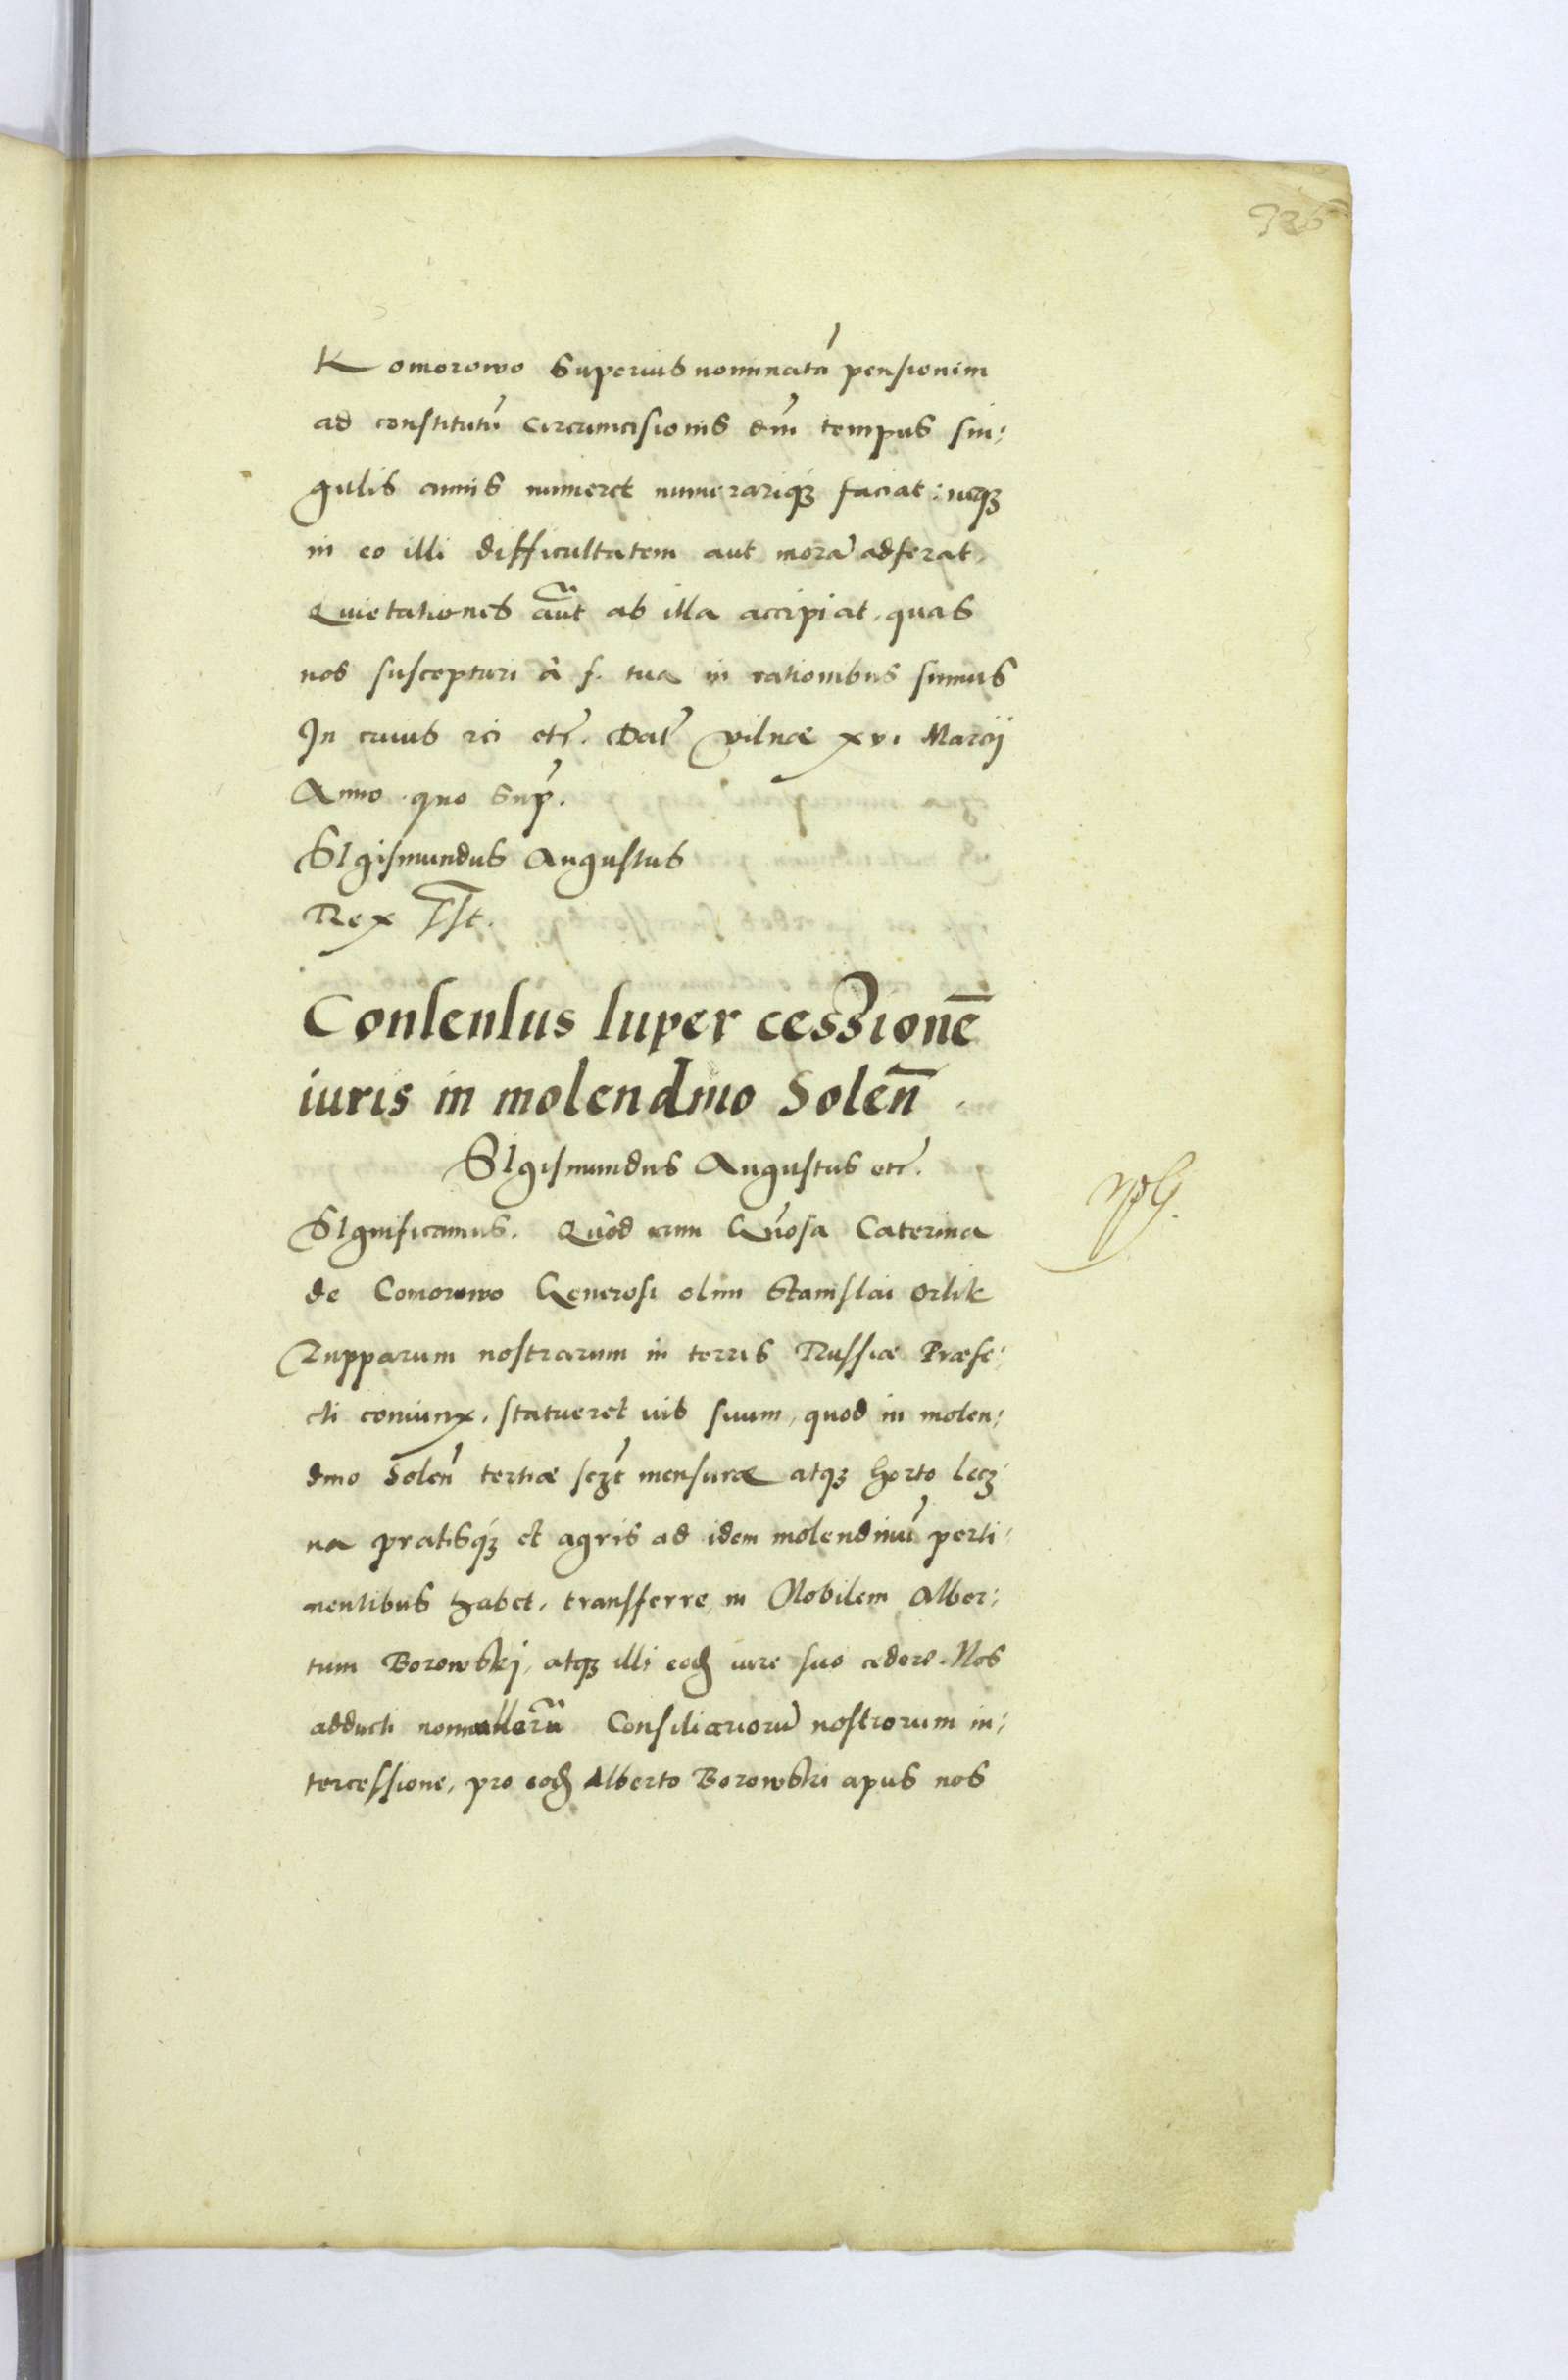 326
Komorowo superius nominatā pensionem
ad constitutū Circumcisionis dm̄ tempus sin:
gulis annis numeret numerariq3 faciat: neq3
in eo illi difficultatem aut morā adferat.
Quietationes aūt ab illa accipiat, quas
nos suscepturi à f. tua in rationibus sumus
In cuius rei etc̄. Dat̄ Vilnæ xvi Marcij
Anno quo sup̄.
SIgismundus Augustus
Rex sst.
Consensus super cessionē
iuris in molendino Solen̄
SIgismundus Augustus etc̄.
SIgnificamus. Quòd cum Gn̄osa Caterina
de Comorowo Generosi olim Stanislai Orlik
Zupparum nostrarum in terris Russiæ Præfe:
cti coniunx, statueret ius suum, quod in molen:
dino Solen̄ tertiæ mensuræ atq3 horto Lecz
na pratisq3 et agris ad idem molendinū perti:
nentibus habet, transferre in Nobilem Alber:
tum Borowskj, atq3 illi eod̄ iure suo cedere. Nos
adducti nonnullorū Consiliariorū nostrorum in:
tercessione, pro eod̄ Alberto Borowski apus nos